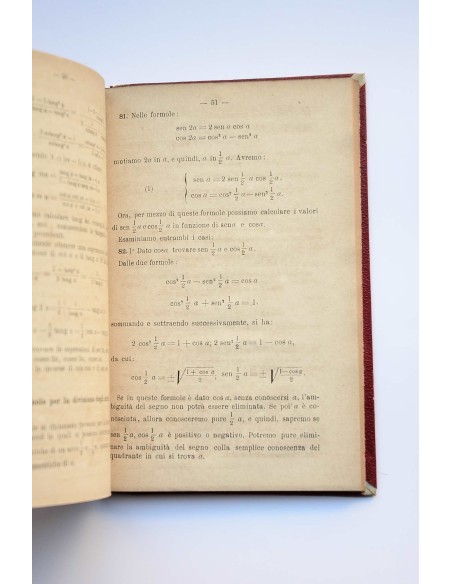 — 51 —
81. Nelle formole:
sen 2a = 2 sen a cos a
cos 2a = cos² a — sen² a
mutiamo 2a in a, e quindi, a in 1/2 a. Avremo:
(1) { sen a = 2 sen 1/2 a cos 1/2 a.
cos a = cos² 1/2 a — sen² 1/2 a.
Ora, per mezzo di queste formole possiamo calcolare i valori
di sen 1/2 a e cos 1/2 a in funzione di sen a e cos a.
Esaminiamo entrambi i casi:
82. 1° Dato cos a trovare sen 1/2 a e cos 1/2 a.
Dalle due formole:
cos² 1/2 a — sen² 1/2 a = cos a
cos² 1/2 a + sen² 1/2 a = 1.
sommando e sottraendo successivamente, si ha:
2 cos² 1/2 a = 1 + cos a; 2 sen² 1/2 a = 1 — cos a,
da cui:
cos 1/2 a = ± √((1 + cos a)/2), sen 1/2 a = ± √((1 — cos a)/2)
Se in queste formole è dato cos a, senza conoscersi a, l'am-
biguità del segno non potrà essere eliminata. Se poi a è co-
nosciuta, allora conosceremo pure 1/2 a, e quindi, sapremo se
sen 1/2 a, cos 1/2 a è positivo o negativo. Potremo pure elimi-
nare la ambiguità del segno colla semplice conoscenza del
quadrante in cui si trova a.